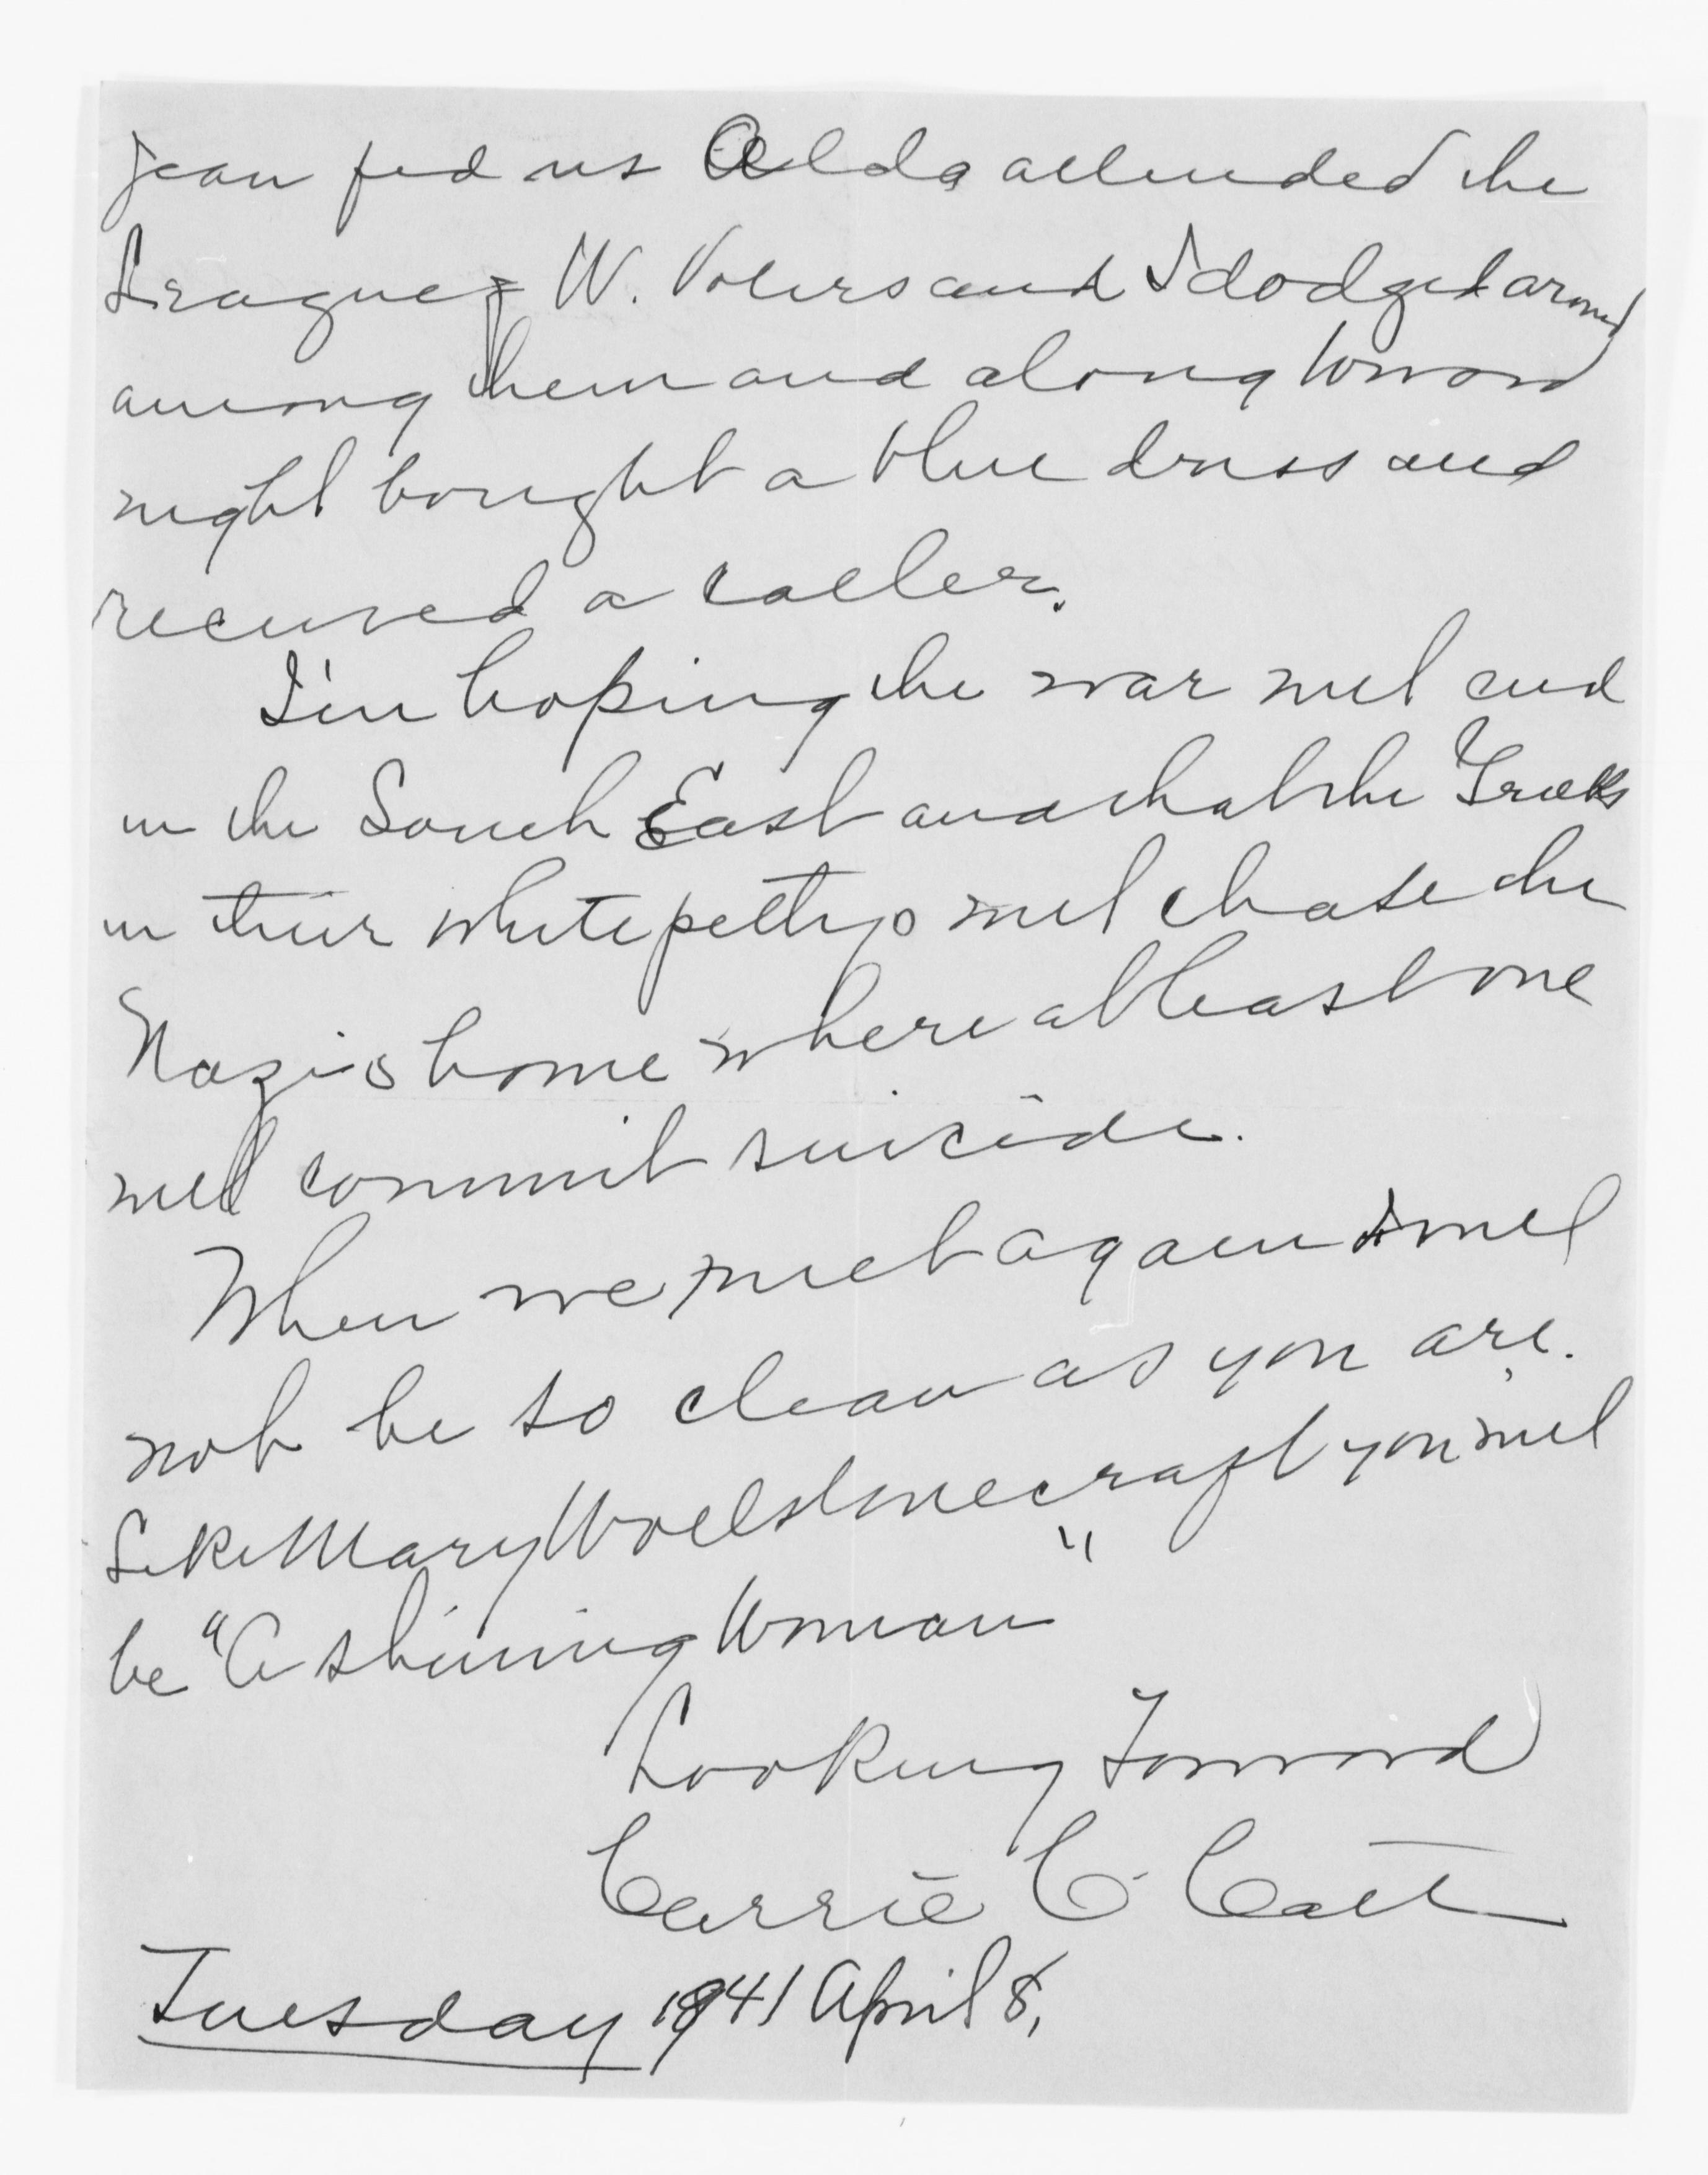 Jean fed us Alda attended the
League of W. Voters and I dodged around
among them and along toward
night bought a blue dress and
received a caller.
I'm hoping the war will end
in the South East and that the Greeks
in their white pettys will chase the
Nazis home where at least one
will commit suicide.
When we meet again I will
not be so clean as you are.
Like Mary Wollstonecraft you will
be "A shining Woman"
Looking Forward
Carrie C. Catt
Tuesday 1941 April 8,